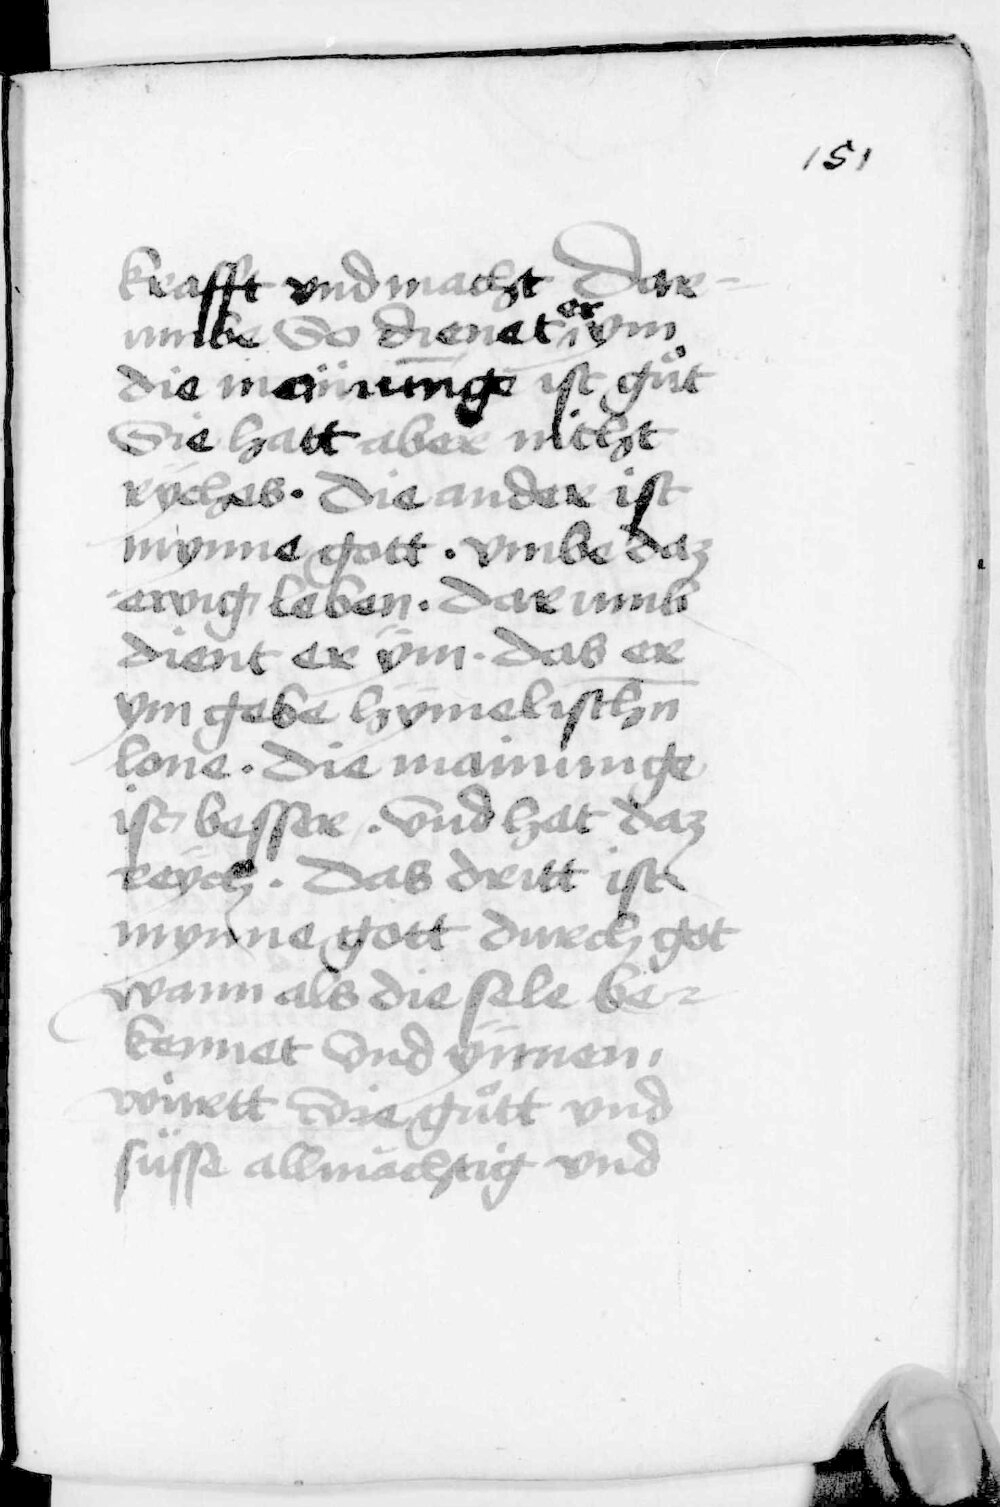 151
krafft vnd macht Dar-
umbe So dienet er ym
die mainunge ist gůt
Sie hatt aber nicht
rÿches. Die ander ist
mynne gott. vmbe daz
ewig leben. Dar umb
dient er ÿm. das er
ym gebe hÿmelischn̄
lone. Die mainunge
ist besser. vnd hat daz
reÿch. Das dritt ist
mynne gott durch got
wann als die sele be-
kennet vnd ÿnnen
wirtt die gůtt vnd
süsse allmächtig vnd